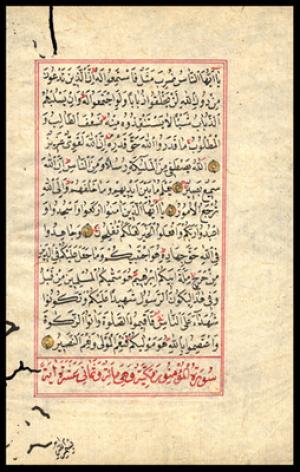 يَا أَيُّهَا النَّاسُ ضُرِبَ مَثَلٌ فَاسْتَمِعُوا لَهُ إِنَّ الَّذِينَ تَدْعُونَ
مِنْ دُونِ اللهِ لَنْ يَخْلُقُوا ذُبَابًا وَلَوِ اجْتَمَعُوا لَهُ وَإِنْ يَسْلُبْهُمُ
الذُّبَابُ شَيْئًا لَا يَسْتَنْقِذُوهُ مِنْهُ ضَعُفَ الطَّالِبُ وَ
الْمَطْلُوبُ مَا قَدَرُوا اللهَ حَقَّ قَدْرِهِ إِنَّ اللهَ لَقَوِيٌّ عَزِيزٌ
اللهُ يَصْطَفِي مِنَ الْمَلٰئِكَةِ رُسُلًا وَمِنَ النَّاسِ إِنَّ اللهَ
سَمِيعٌ بَصِيرٌ يَعْلَمُ مَا بَيْنَ أَيْدِيهِمْ وَمَا خَلْفَهُمْ وَإِلَى اللهِ
تُرْجَعُ الْأُمُورُ يَا أَيُّهَا الَّذِينَ آمَنُوا ارْكَعُوا وَاسْجُدُوا وَ
اعْبُدُوا رَبَّكُمْ وَافْعَلُوا الْخَيْرَ لَعَلَّكُمْ تُفْلِحُونَ وَجَاهِدُوا
فِي اللهِ حَقَّ جِهَادِهِ هُوَ اجْتَبٰيكُمْ وَمَا جَعَلَ عَلَيْكُمْ فِي الدِّينِ
مِنْ حَرَجٍ مِلَّةَ أَبِيكُمْ إِبْرٰهِيمَ هُوَ سَمّٰيكُمُ الْمُسْلِمِينَ مِنْ قَبْلُ
وَفِي هٰذَا لِيَكُونَ الرَّسُولُ شَهِيدًا عَلَيْكُمْ وَتَكُونُوا
شُهَدَاءَ عَلَى النَّاسِ فَأَقِيمُوا الصَّلٰوةَ وَآتُوا الزَّكٰوةَ
وَاعْتَصِمُوا بِاللهِ هُوَ مَوْلٰيكُمْ فَنِعْمَ الْمَوْلٰى وَنِعْمَ النَّصِيرُ
سُورَةُ الْمُؤْمِنُونَ مَكِّيَّةٌ وَهِيَ مِائَةٌ وَثَمَانِي عَشْرَةَ آيَة